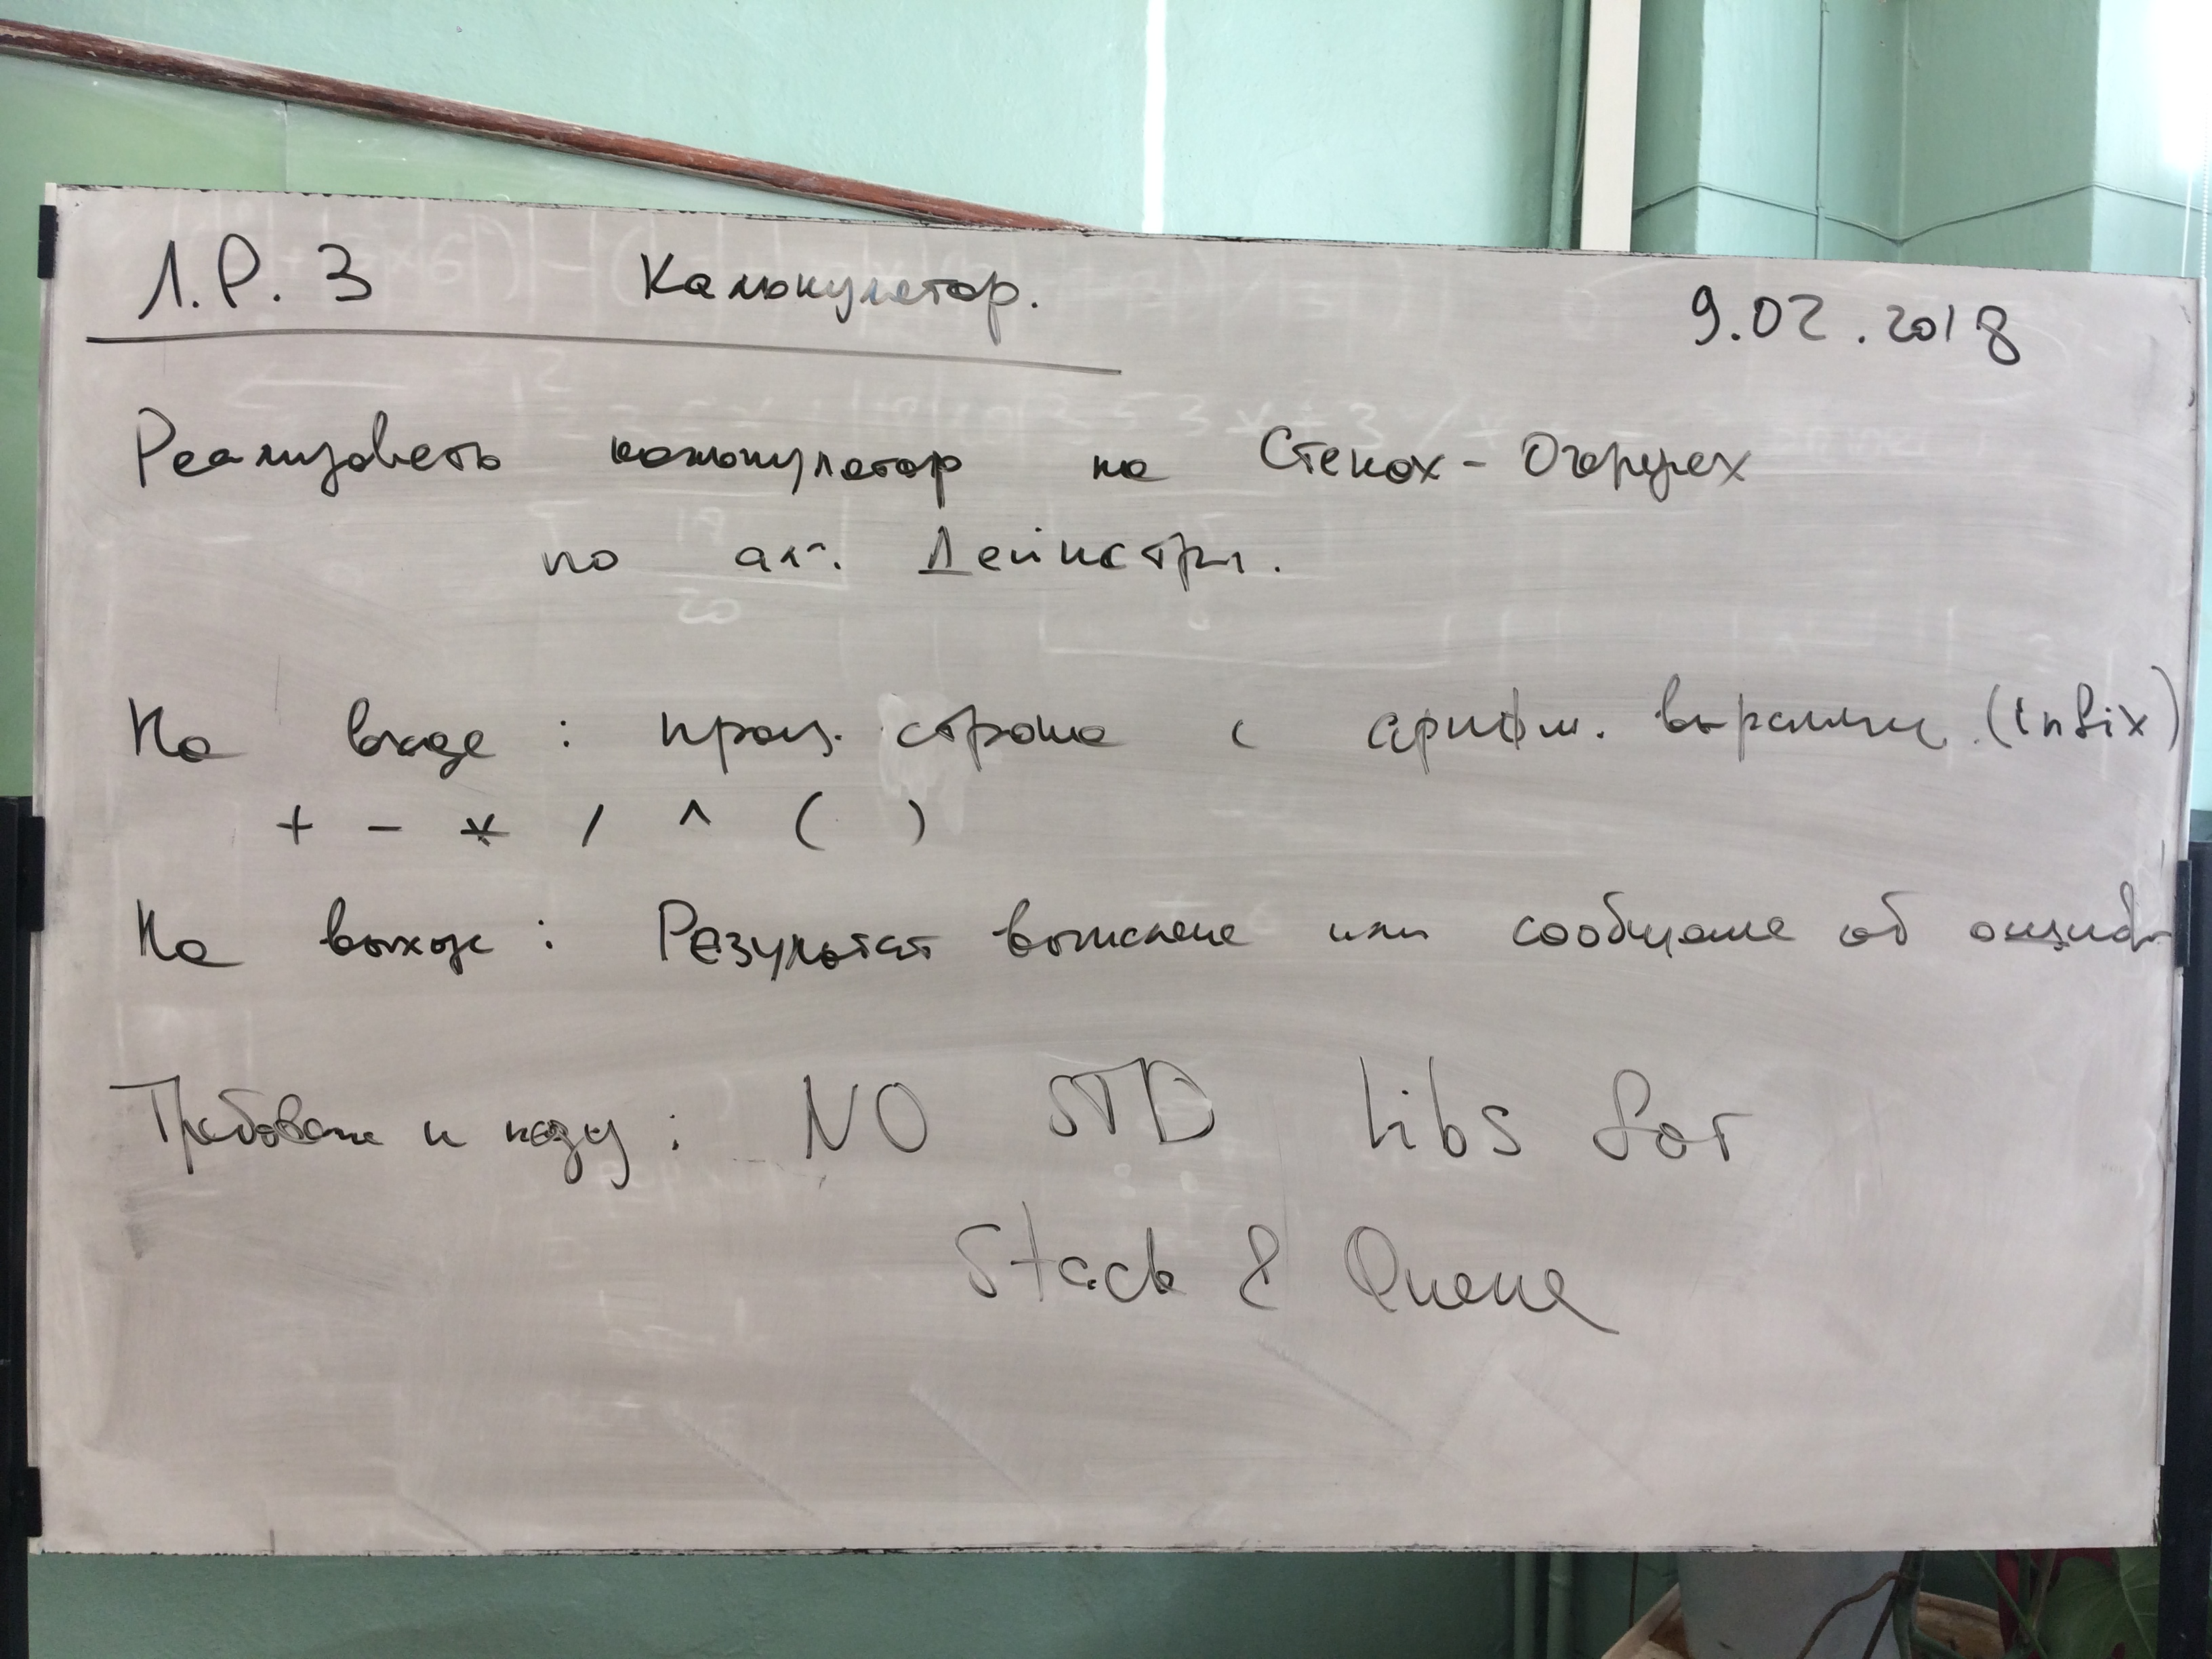 Л.Р. 3 Калькулятор. 9.02.2018
Реализовать калькулятор на Стеках-Очередях
по алг. Дейкстры.
На входе : произ. строка с арифм. выражен. (infix)
+ - * / ^ ( )
На выходе : Результат вычисление или сообщение об ошибк
Требован к коду : NO STD Libs for
Stack & Queue